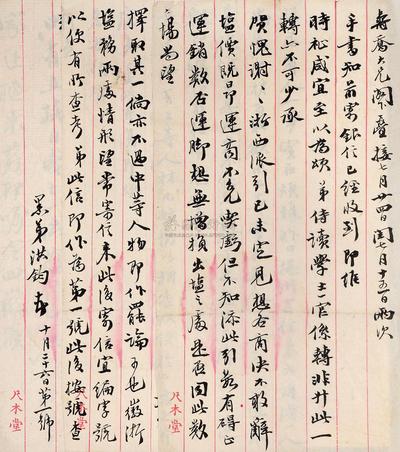 喬大兄閣下疊接七月廿四日閏七月十五日兩次
手書知前寄銀信已經收到即維
時祉咸宜至以為頌弟侍讀學士一官係轉非升此一
轉亦不可少承
賀愧謝〻浙西派引已未定見想右商決不敢辭
塩價既昂運商不免喫虧但不知添此引數有碍正
運銷數否運腳想無增損出塩之處是否因此數
場為望
擇取其一倘亦不過中等人物即作罷論可也徽浙
塩務兩處情形望常寄信來此後寄信宜編字號
以便有所查考弟此信即作為第一號此後按號查
弟洪鈞 十月二十六日第一號
尺木堂
尺木堂